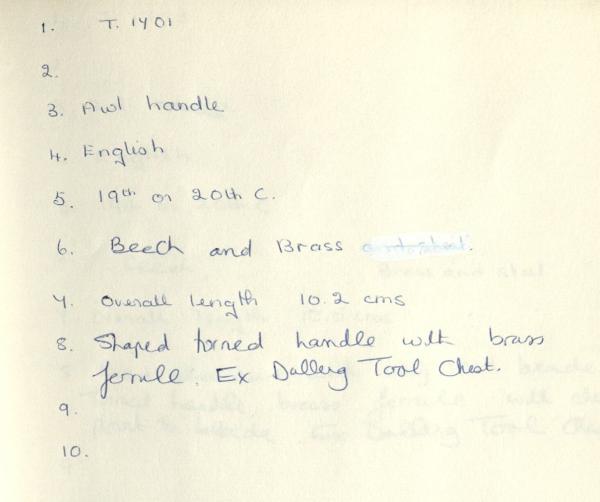 1. T. 1401
2.
3. Awl handle
4. English
5. 19th or 20th C.
6. Beech and Brass
7. Overall length 10.2 cms
8. Shaped turned handle with brass
ferrule. Ex Dallery Tool Chest.
9.
10.